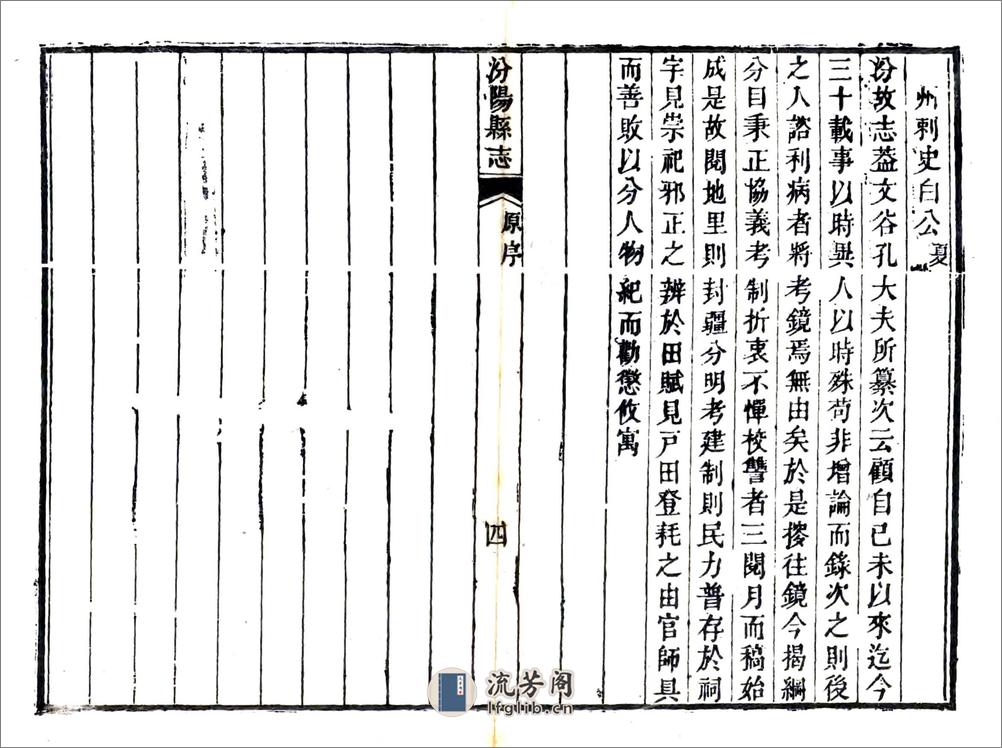 州刺史白公夏
汾故志葢文谷孔大夫所纂次云顧自己未以來迄今
三十載事以時異人以時殊苟非增論而錄次之則後
之人諮利病者將考鏡焉無由矣於是援往鏡今揭綱
分目秉正協義考制折衷不憚校讐者三閱月而稿始
成是故閱地里則封疆分明考建制則民力普存於祠
宇見崇祀邪正之辨於田賦見戸田登耗之由官師具
而善敗以分人物紀而勸懲攸寓
汾陽縣志
原序
四
流芳阁
lfglib.cn